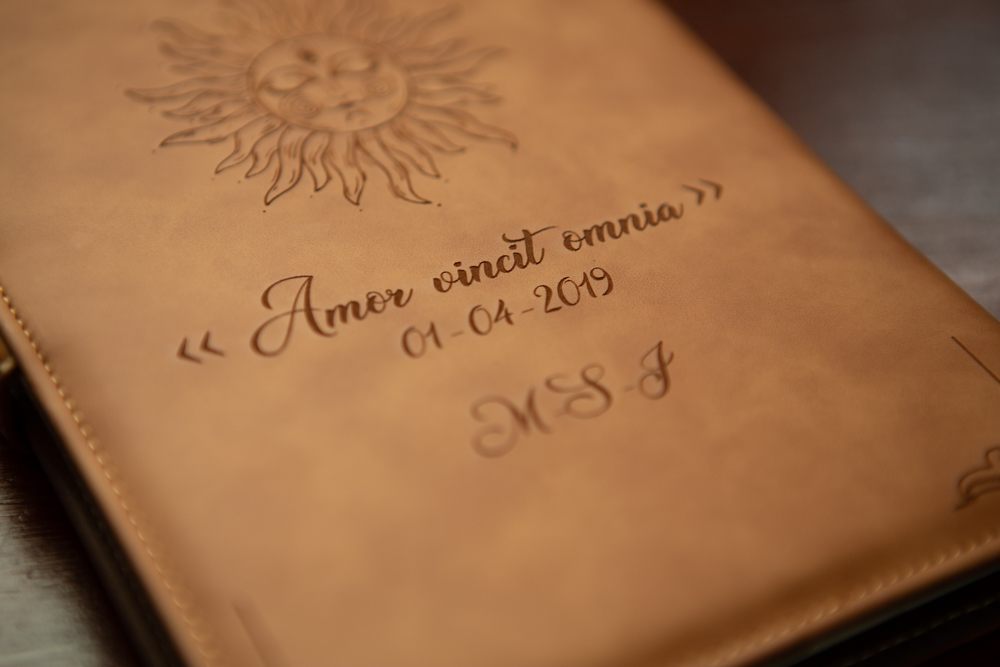 ‹‹ Amor vincit omnia ››
01-04-2019
M-S-J